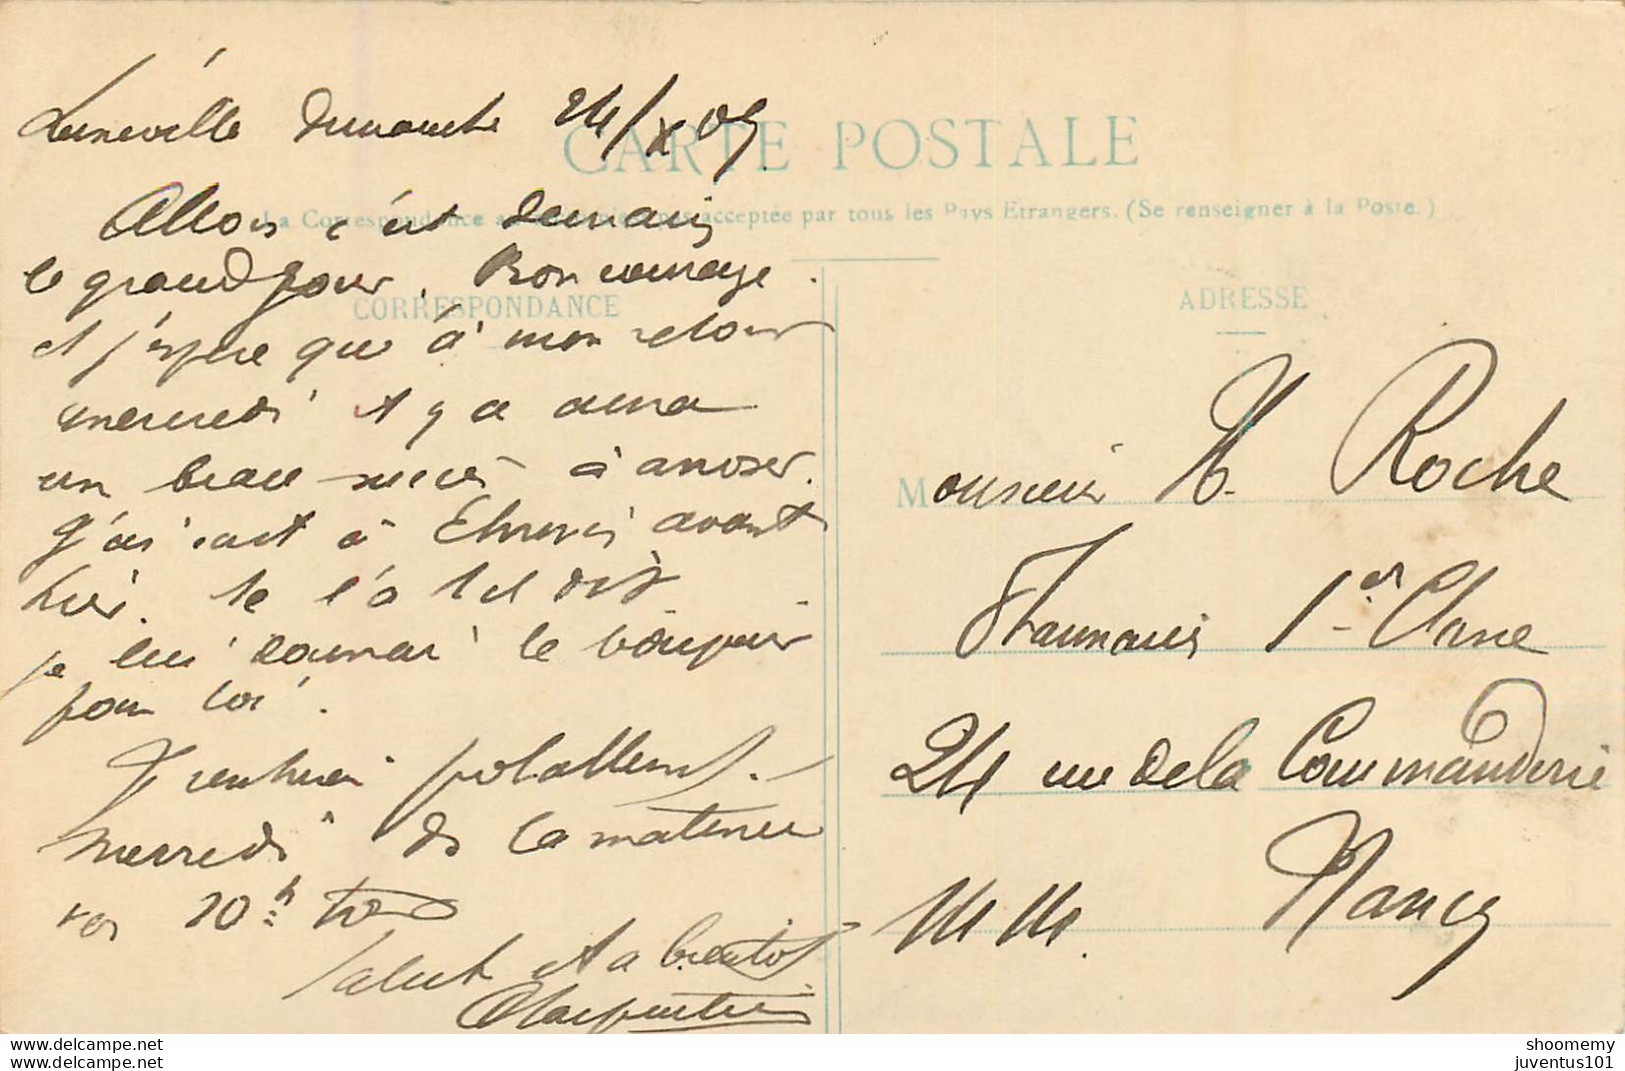 Luneville dimanche 24/X 09.
CARTE POSTALE
La Correspondance au pas acceptée par tous les Pays Etrangers. (Se renseigner à la Poste.)
Allons c'est demain
le grand jour. Bon courage.
CORRESPONDANCE
et j'espère que à mon retour
mercredi il y a aura
un beau succès à arroser.
J'ai écrit à avant
hier. Te l'a t il dit.
je lui donnai le bonjour
pour toi.
Je rentrerai
mercredi ds la matinée
vers 10h
Salut et a bientot
Charpentier
ADRESSE
Monsieur H. Roche
Pharmacien 1er Classe
24 rue de la Commanderie
Nancy
M M.
www.delcampe.net
www.delcampe.net
shoomemy
juventus101